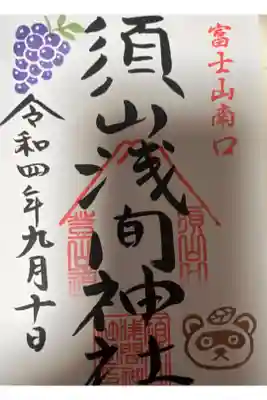 富士山南口
須山浅間神社
令和四年九月十日